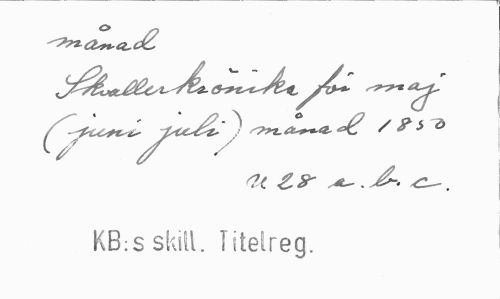 månad
Skvallerkrönika för maj
(juni juli) månad 1850
U 28 a. b. c.
KB:s skill. Titelreg.